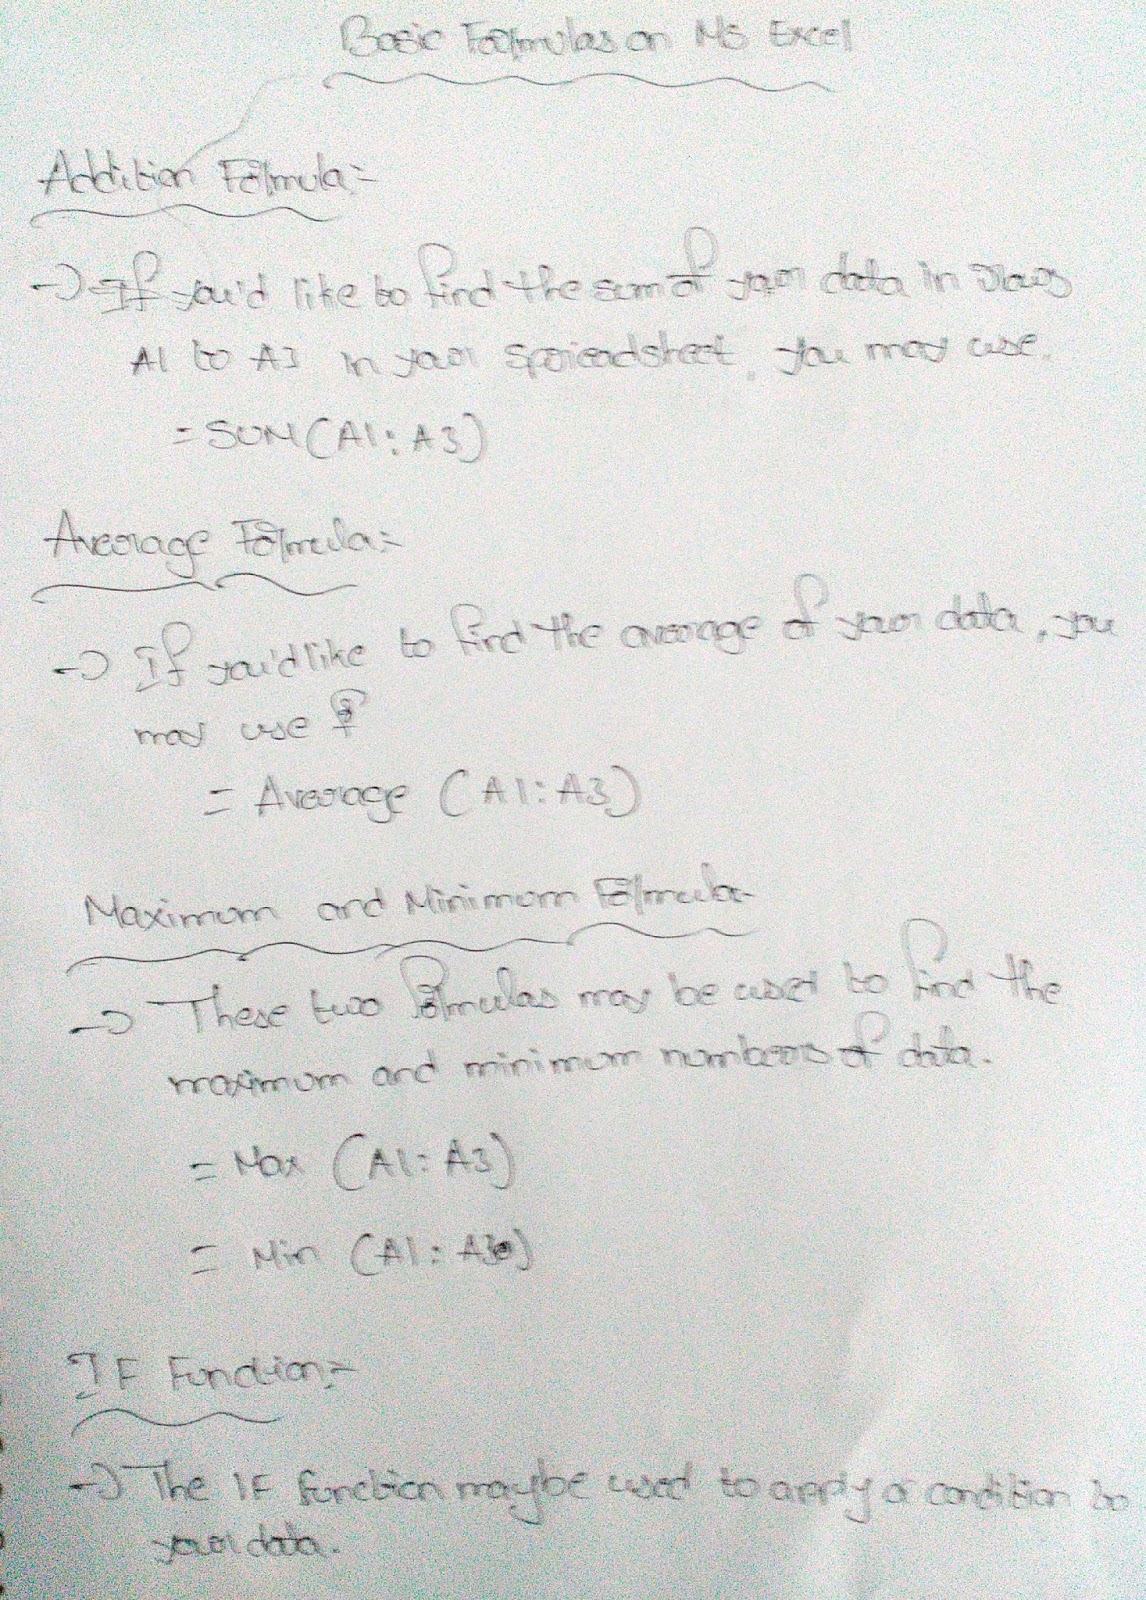 Basic Formulas on MS Excel
Addition Formula:-
→ If you'd like to find the sum of your data in rows
A1 to A3 in your spreadsheet, you may use.
=SUM(A1:A3)
Average Formula:-
→ If you'd like to find the average of your data, you
may use
= Average (A1:A3)
Maximum and Minimum Formula-
→ These two formulas may be used to find the
maximum and minimum numbers of data.
= Max (A1:A3)
= Min (A1:A3)
IF Function:-
→ The IF function maybe used to apply a condition to
your data.